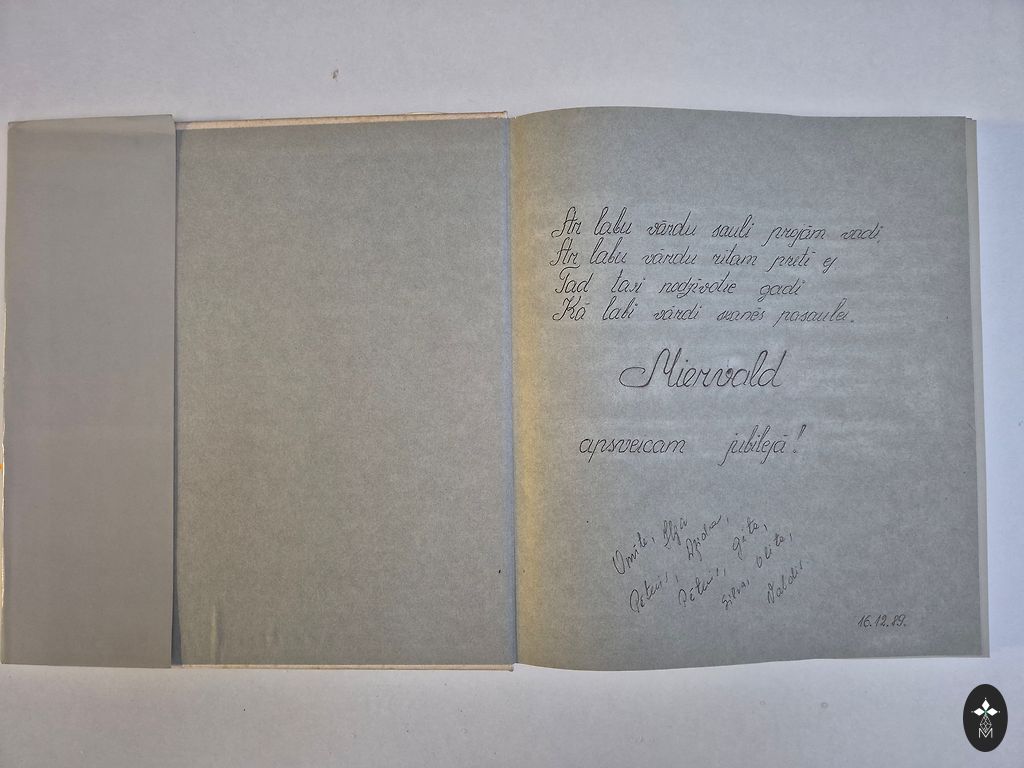 Ar labu vārdu sauli projām vadi,
Ar labu vārdu rītam pretī ej
Tad tavi nodzīvotie gadi
Kā labi vārdi skanēs pasaulei.
Miervald
apsveicam jubilejā!
Dzidra,
Pēteris, Gita,
Pēteris, Olita,
Valdis.
16.12.89.
M